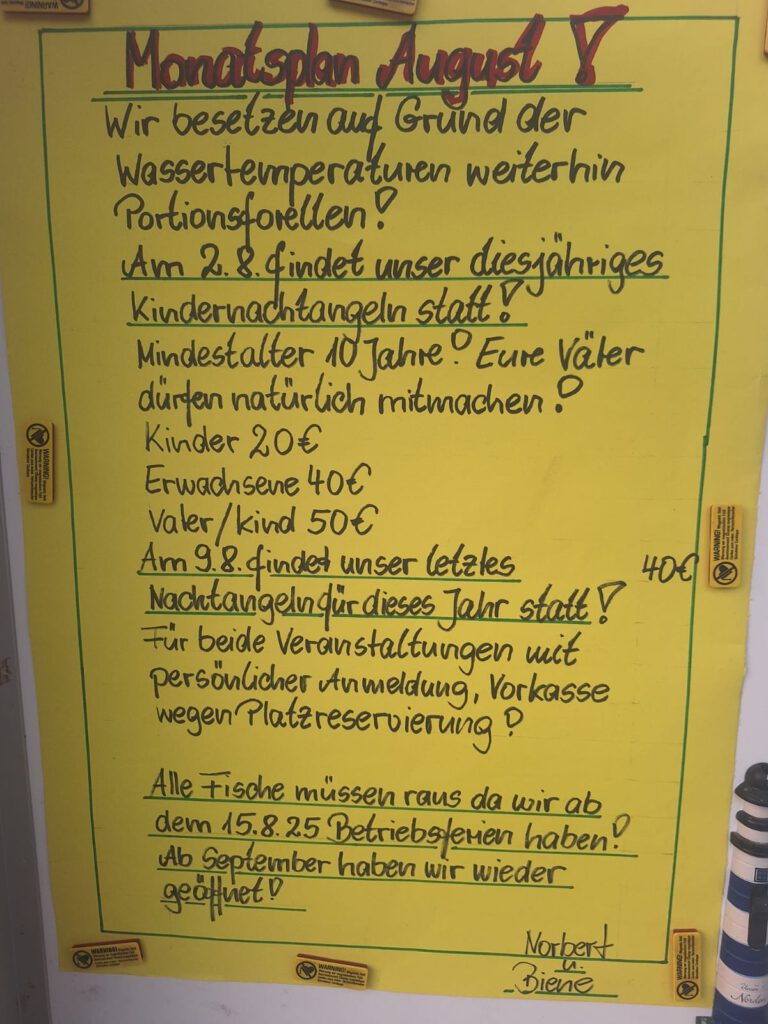 Monatsplan August!
Wir besetzen auf Grund der
Wassertemperaturen weiterhin
Portionsforellen!
Am 2.8. findet unser diesjähriges
Kindernachtangeln statt!
Mindestalter 10 Jahre! Eure Väter
dürfen natürlich mitmachen!
Kinder 20€
Erwachsene 40€
Vater/kind 50€
Am 9.8. findet unser letztes 40€
Nachtangeln für dieses Jahr statt!
Für beide Veranstaltungen mit
persönlicher Anmeldung, Vorkasse
wegen Platzreservierung!
Alle Fische müssen raus da wir ab
dem 15.8.25 Betriebsferien haben!
Ab September haben wir wieder
geöffnet!
Norbert
u.
Biene
WARNING!
WARNING!
WARNING!
WARNING!
WARNING!
WARNING!
Unser
Norden